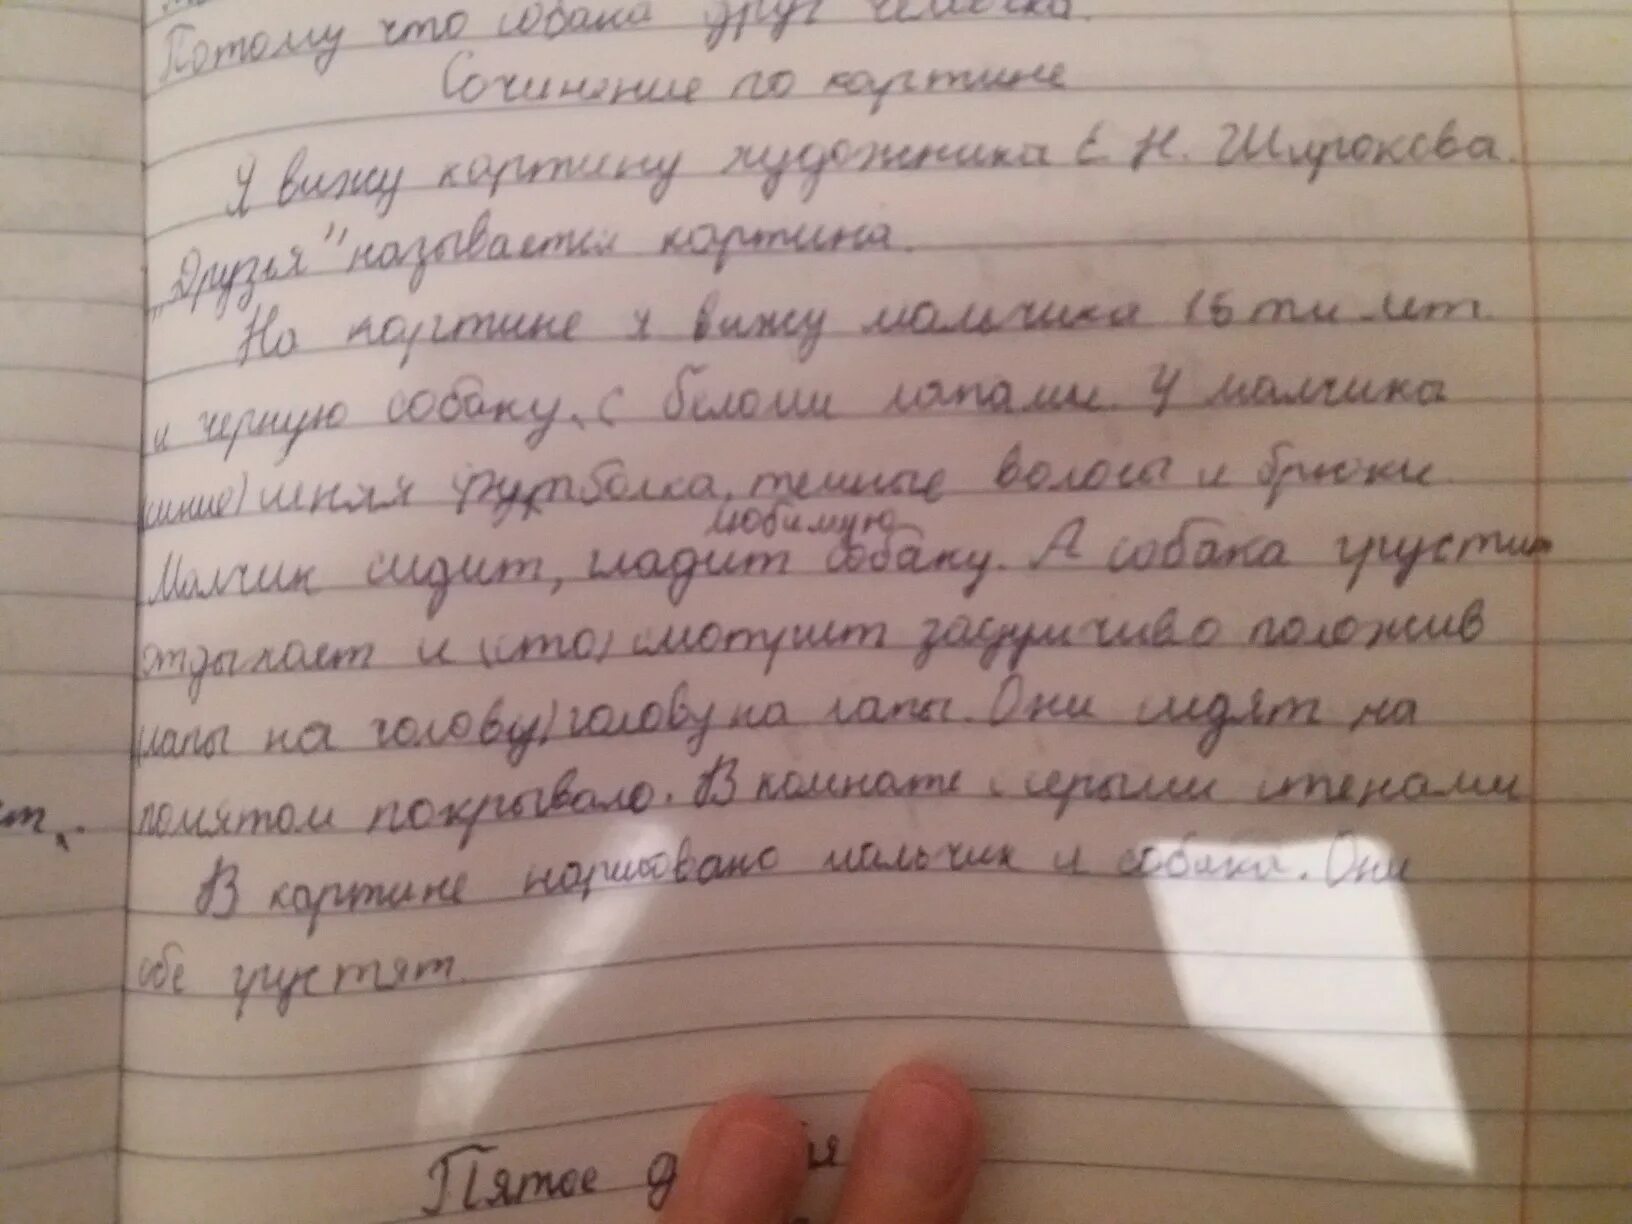 Потому что собака друг человека.
Сочинение по картине
Я вижу картину художника Е Н. Широкова.
"Друзья" называется картина.
На картине я вижу мальчика 15 ти лет.
и черную собаку, с белыми лапами. У малчика
(синие) синяя футболка, темные волосы и брюки.
любимую
Малчик сидит, гладит собаку. А собака грустит
отдыхает и (сто) смотрит задумчиво положив
(лапы на голову) голову на лапы. Они сидят на
помятом покрывало. В комнате с серыми стенами
ст..
В картине нарисовано мальчик и собака. Они
обе грустят.
Пятое д